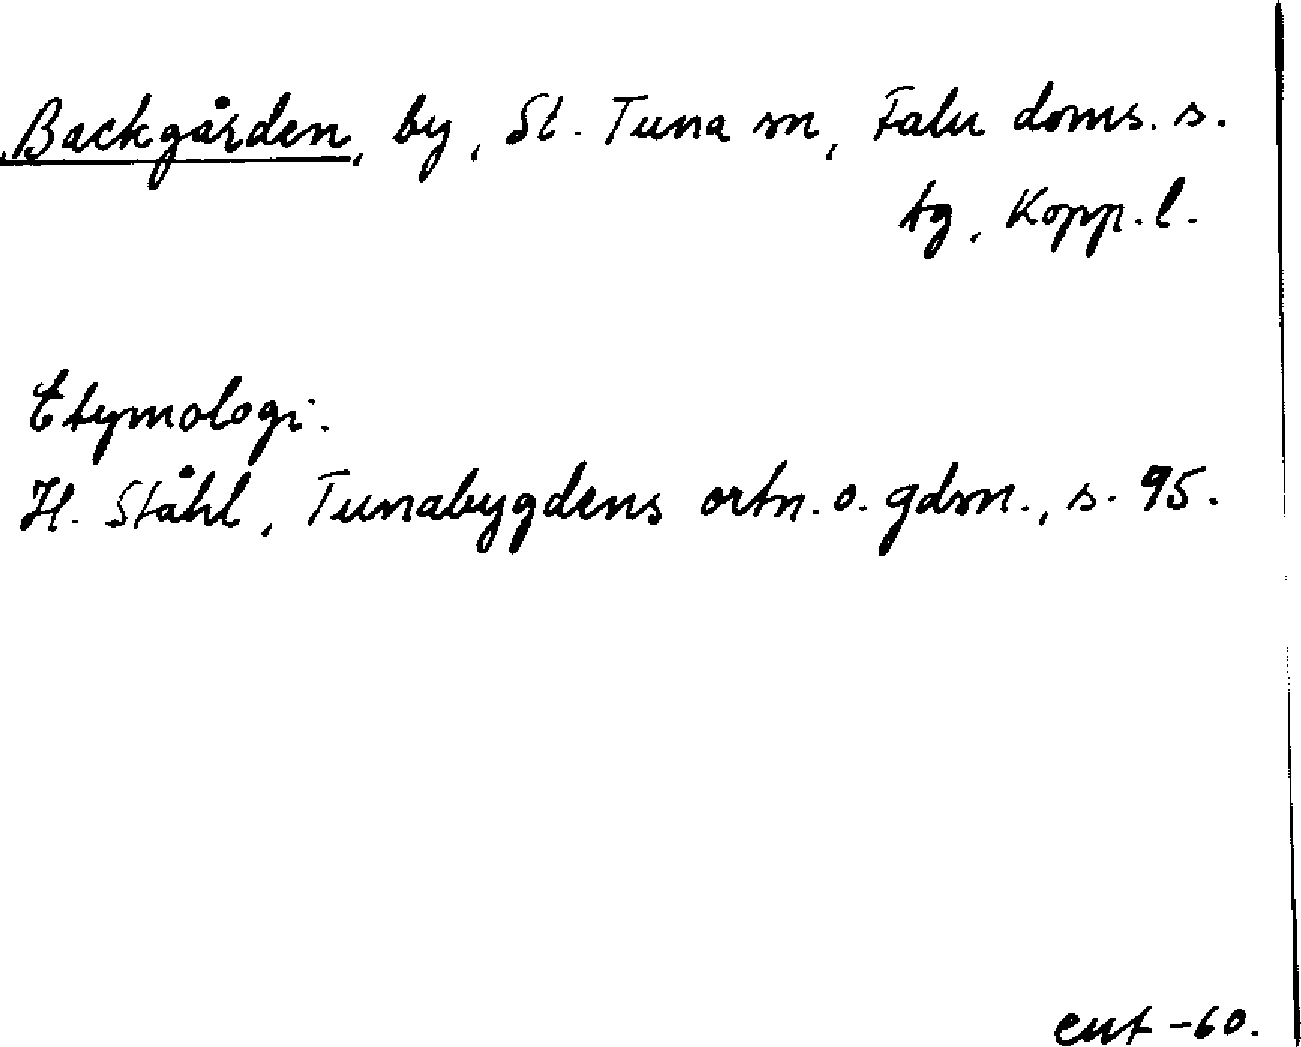 Backgården, by, St. Tuna sn, Falu doms. s.
tg, Kopp. l.
Etymologi:
H. Ståhl, Tunabygdens ortn. o. gdsn., s. 95.
enf -60.